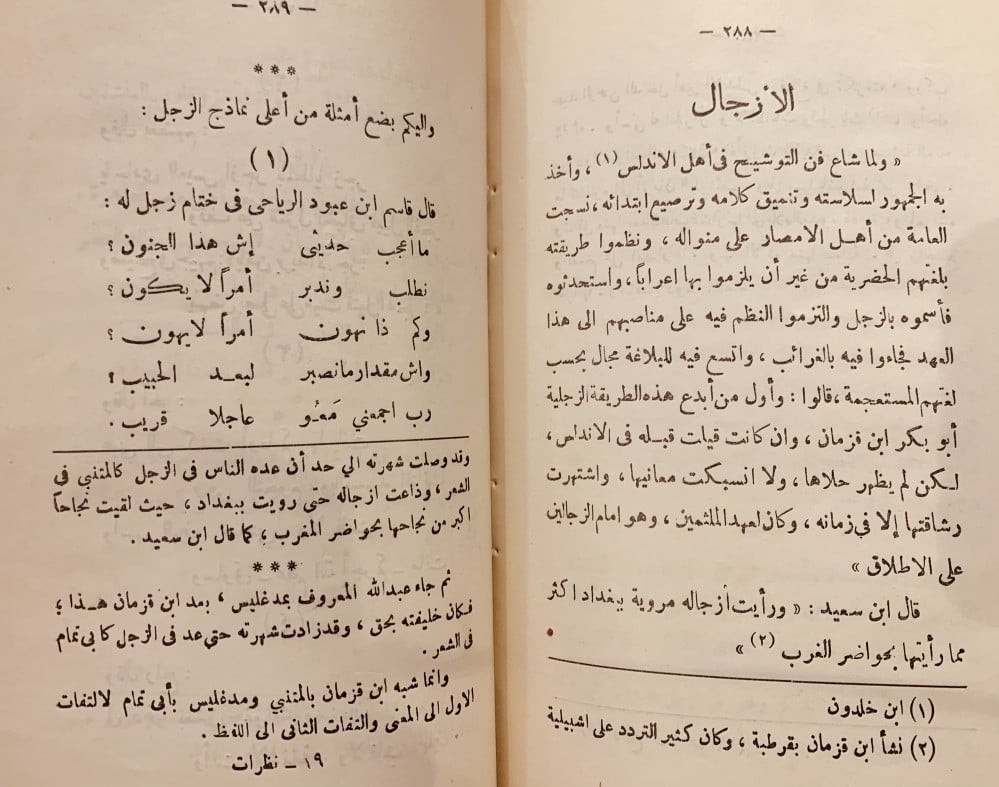 — ٢٨٨ —
الأزجال
« ولما شاع فن التوشيح فى أهل الاندلس (١) ، وأخذ
به الجمهور لسلاسته وتنميق كلامه وترصيع ابتدائه ، نسجت
العامة من أهل الامصار على منواله ، ونظموا طريقته
بلغتهم الحضرية من غير أن يلزموا بها اعراباً ، واستحدثوه
فأسموه بالزجل والتزموا النظم فيه على مناصبهم الى هذا
العهد فجاءوا فيه بالغرائب ، واتسع فيه للبلاغة مجال بحسب
لغتهم المستعجمة ، قالوا : وأول من أبدع هذه الطريقة الزجلية
أبو بكر ابن قزمان ، وان كانت قيلت قبله فى الاندلس ،
لكن لم يظهر حلاها ، ولا انسبكت معانيها ، واشتهرت
رشاقتها إلا فى زمانه ، وكان لعهد الملثمين ، وهو امام الزجالين
على الاطلاق »
قال ابن سعيد : « ورأيت أزجاله مروية ببغداد اكثر
مما رأيتها بحواضر الغرب (٢) »
(١) ابن خلدون
(٢) نشأ ابن قزمان بقرطبة ، وكان كثير التردد على اشبيلية
— ٢٨٩ —
***
واليكم بضع أمثلة من أعلى نماذج الزجل :
(١)
قال قاسم ابن عبود الرياحى فى ختام زجل له :
ما أعجب حديثى إش هذا الجنون ؟
نطلب وندبر أمراً لا يكون ؟
وكم ذا نهون أمراً لايهون ؟
واش مقدار مانصبر لبعد الحبيب ؟
رب اجمعني مَعُو عاجلا قريب .
وقد وصلت شهرته الي حد أن عده الناس في الزجل كالمتنبي في
الشعر ، وذاعت ازجاله حتى رويت ببغداد ، حيث لقيت نجاحاً
اكبر من نجاحها بحواضر المغرب ؛ كما قال ابن سعيد .
***
ثم جاء عبدالله المعروف بمدغليس ، بعد ابن قزمان هذا ؛
فكان خليفته بحق ، وقد زادت شهرته حتى عد فى الزجل كابى تمام
فى الشعر .
وانما شبه ابن قزمان بالمتنبي ومدغليس بأبى تمام لالتفات
الاول الى المعنى والتفات الثانى الى اللفظ .
١٩ ـ نظرات